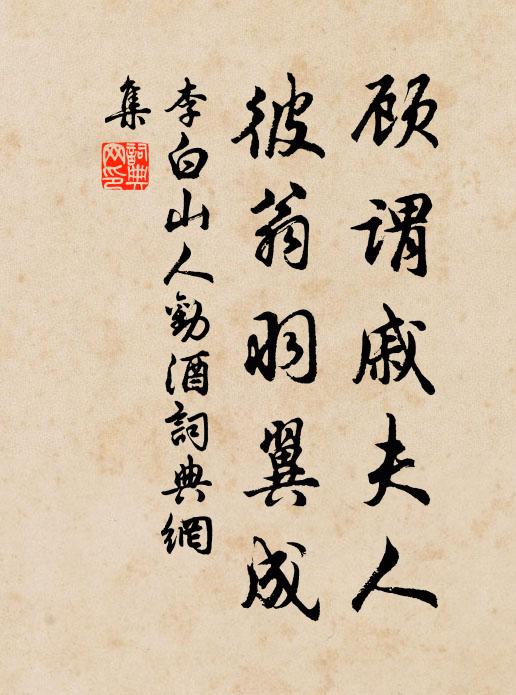 顾谓戚夫人
彼翁羽翼成
李白山人劝酒詞典網
集
詞典網印